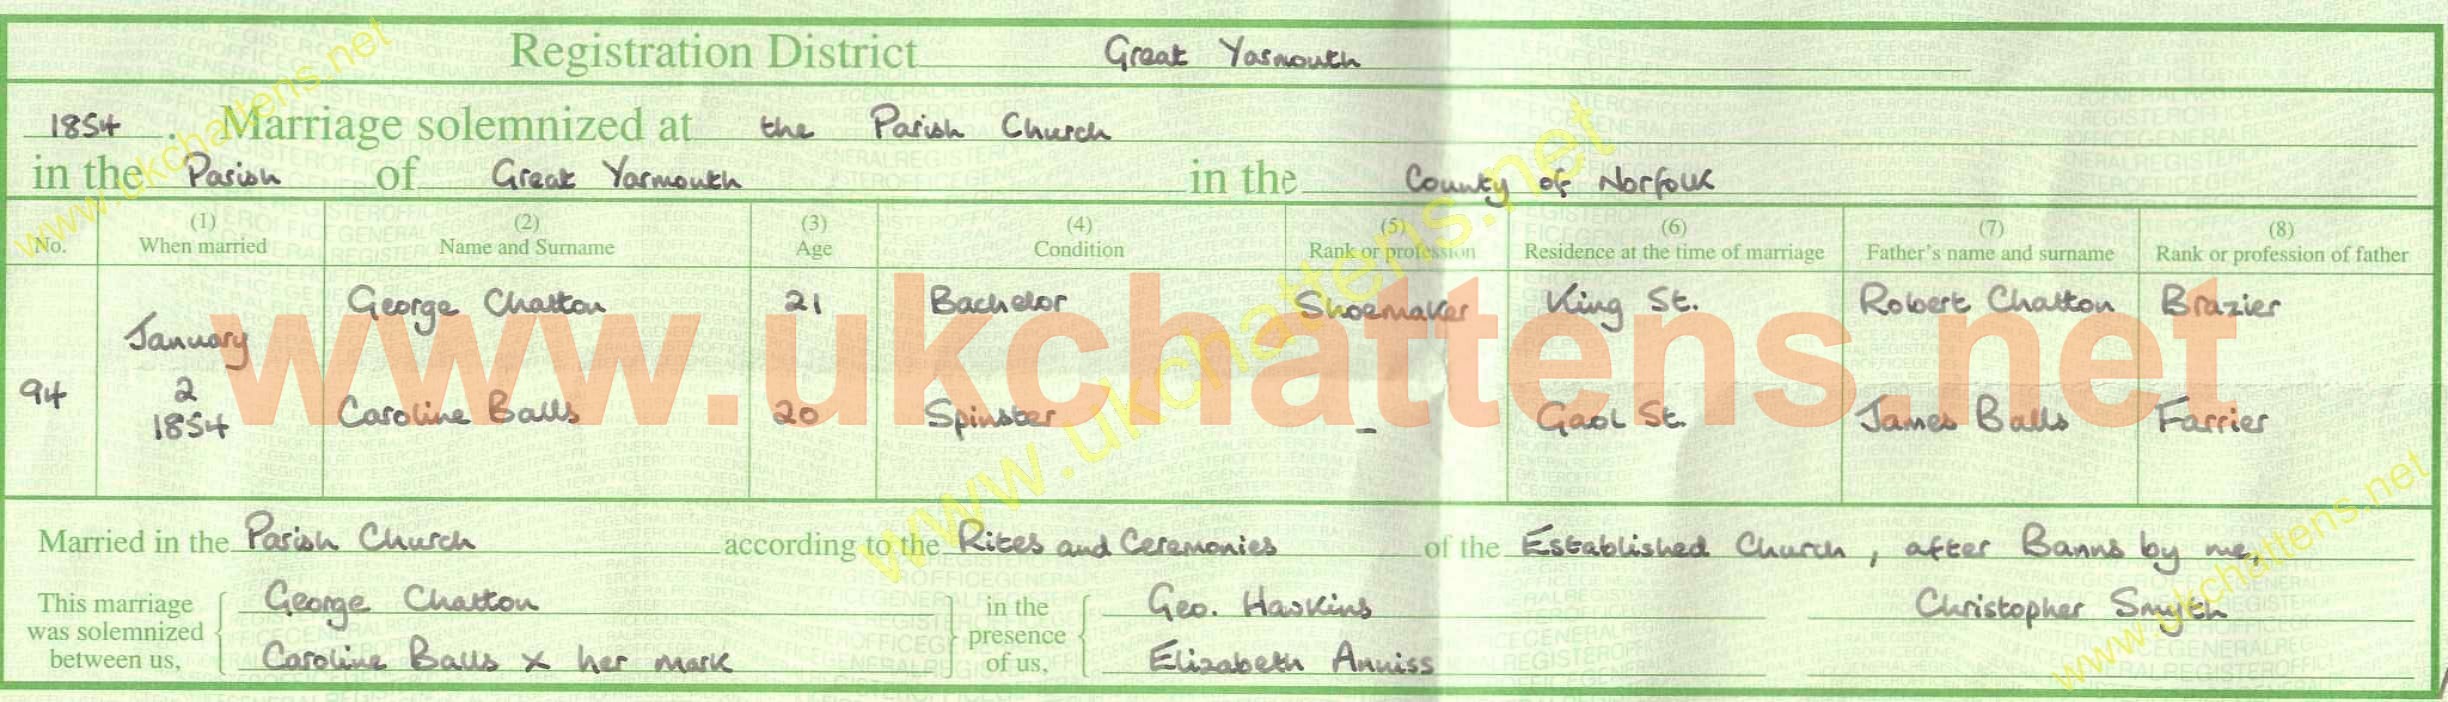 Registration District Great Yarmouth
1854. Marriage solemnized at the Parish Church
in the Parish of Great Yarmouth in the County of Norfolk
No. (1) When married (2) Name and Surname (3) Age (4) Condition (5) Rank or profession (6) Residence at the time of marriage (7) Father's name and surname (8) Rank or profession of father
94 January 2 1854
George Chatton 21 Bachelor Shoemaker King St. Robert Chatton Brazier
Caroline Balls 20 Spinster - Gaol St. James Balls Farrier
www.ukchattens.net
Married in the Parish Church according to the Rites and Ceremonies of the Established Church, after Banns by me,
This marriage was solemnized between us, George Chatton in the presence of us, Geo. Haskins Christopher Smyth
Caroline Balls x her mark Elizabeth Anniss
www.ukchattens.net
www.ukchattens.net
www.ukchattens.net